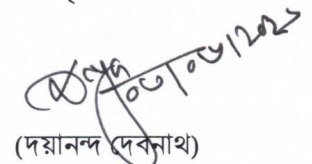 ০৩/০৩/২০২১
(দয়ানন্দ দেবনাথ)